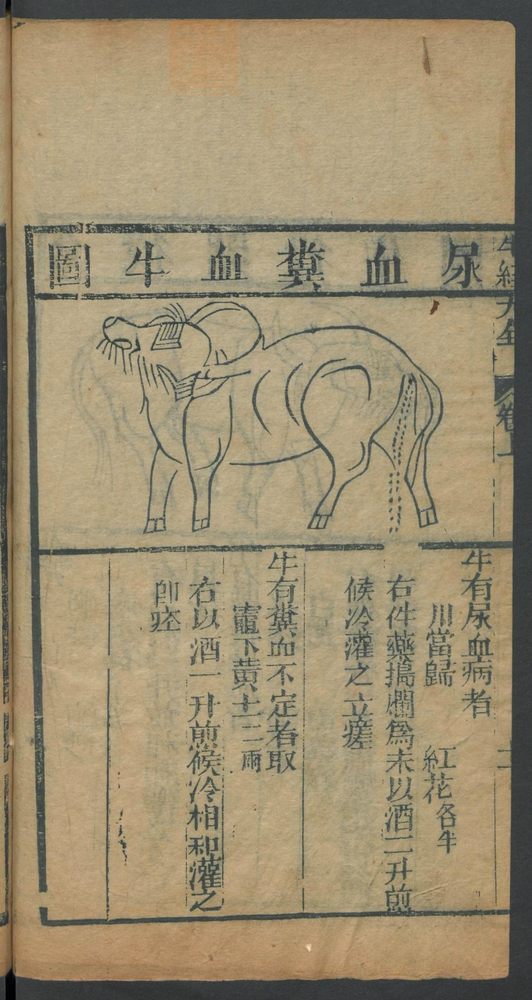 尿血糞血牛圖
牛經大全
卷上
牛有尿血病者
川當歸 紅花各半
右件藥搗爛為末以酒二升煎
候冷灌之立瘥
牛有糞血不定者取
竈下黃土二兩
右以酒一升煎候冷相和灌之
即痊